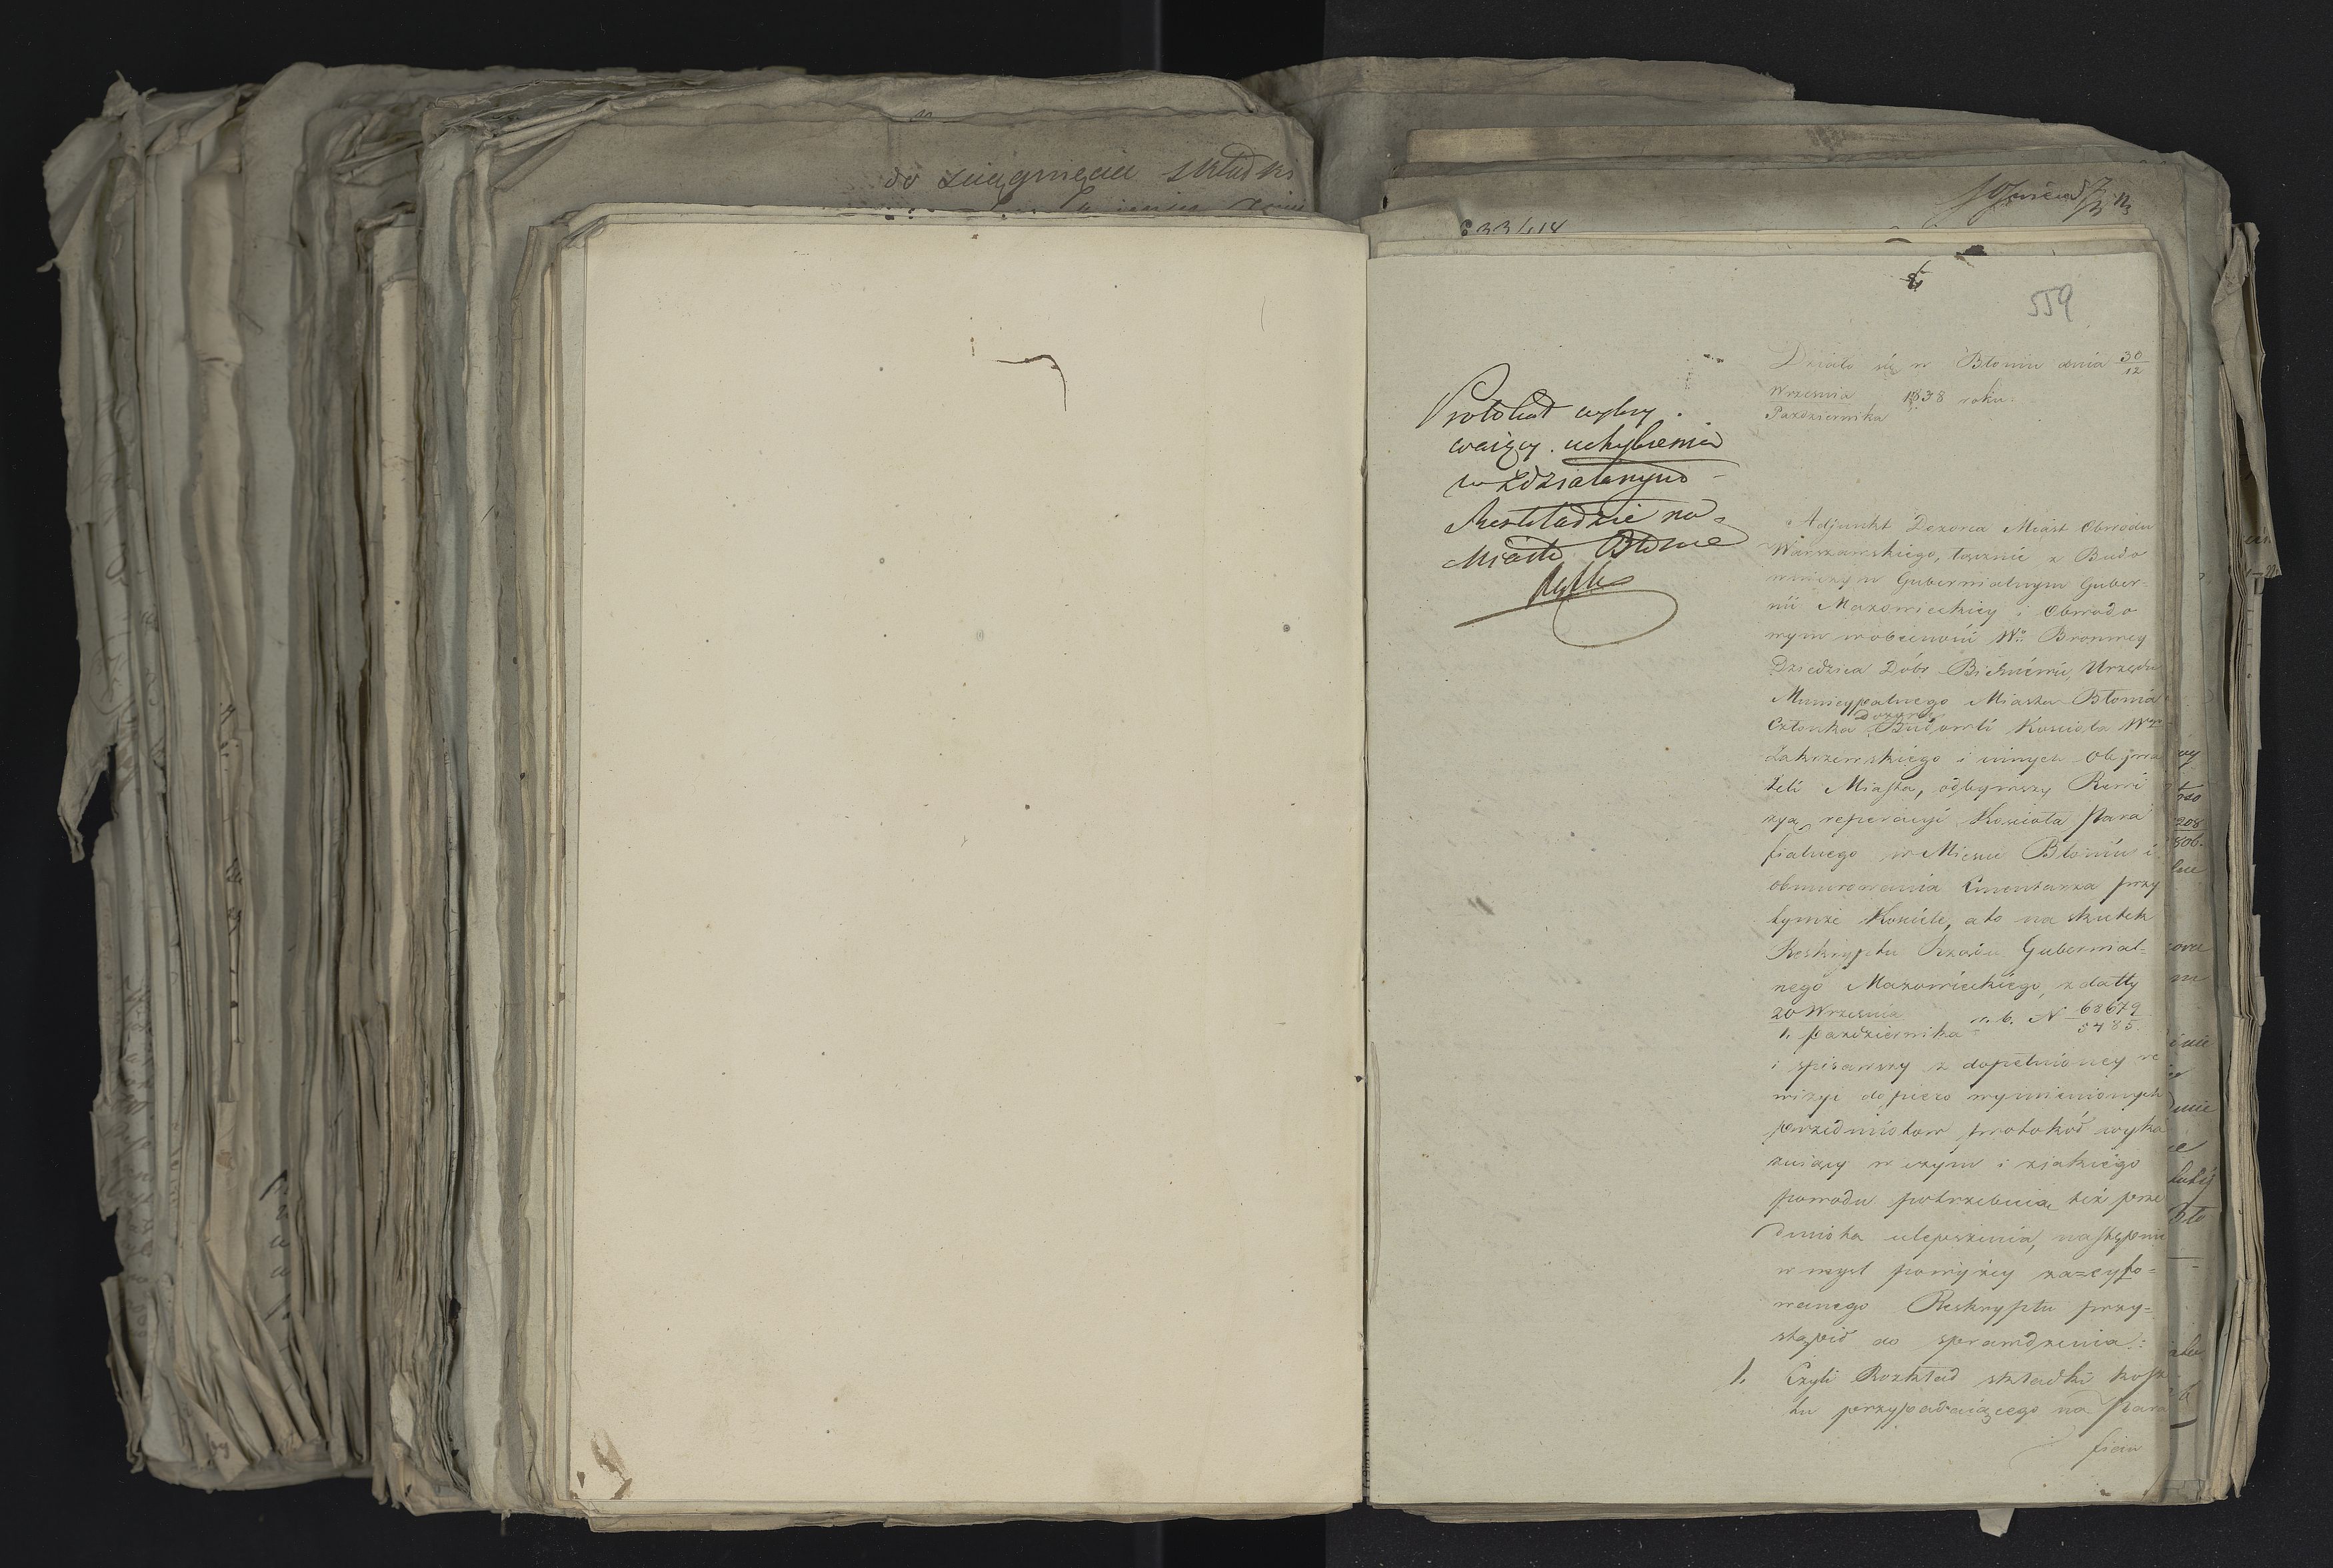 do sciągnięcia składki
559
Działo się w Błoniu dnia 30/12
Września/Października 1838 roku.
Protokół wyka-
zuiący uchybienia
w zdziałanym
Rozkładzie na
Miasto Błonie
Adjunkt Dozorca Miast Obwodu
Warszawskiego, łącznie z Budo
wniczym Gubernialnym Guber-
nii Mazowieckiey i Obwodo
wym w obecności Wo Bronwey
Dziedzica Dóbr Bieniewic, Urzędu
Municypalnego Miasta Błonia
Członka Dozoru Budowli Kościoła Wgo
Zakrzewskiego i innych Obywa
teli Miasta, odbywszy Rewi
zyą reperacyi Kościoła Para
fialnego w Mieście Błoniu i
obmurowania Cmentarza przy
tymże Kościele, a to na skutek
Reskryptu Rządu Gubernial-
nego Mazowieckiego z datty
20 Września/1. Października r. b. N 68679/5485
i spisawszy z dopełnioney re
wizyi dopiero wymienionych
przedmiotów protokół wyka
zuiący w czym i z iakiego
powodu potrzebuią też prze
dmiota ulepszenia, następnie
w myśl powyżey zacyto-
wanego Reskryptu przy-
stąpił do sprawdzenia:
1. Czyli Rozkład składki kosz
tu przypadaiącego na Para
ficiu